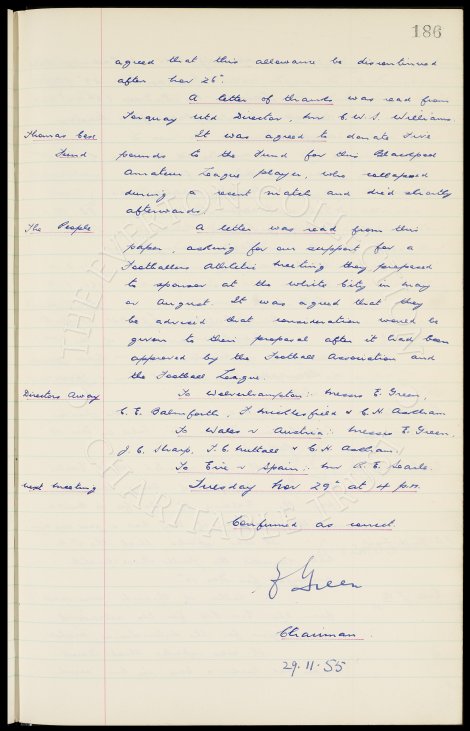 186
agreed that this allowance be discontinued
after Nov 26th.
A letter of thanks was read from
Torquay Utd Director, Mr C.W.S. Williams.
Thomas Case Fund
It was agreed to donate Five
pounds to the Fund for this Blackpool
Amateur League player, who collapsed
during a recent match and died shortly
afterwards.
The People
A letter was read from this
paper, asking for our support for a
Footballers Athletic Meeting they proposed
to sponsor at the White City in May
or August. It was agreed that they
be advised that consideration would be
given to their proposal after it had been
approved by the Football Association and
the Football League.
Directors Away
To Wolverhampton: Messrs E. Green,
C. E. Balmforth, F. Micklesfield & C. H. Askham
To Wales v Austria: Messrs E. Green,
J. C. Sharp, T. C. Nuttall & C. H. Askham.
To Eire v Spain: Mr R. E. Searle.
next meeting
Tuesday Nov 29th at 4 p.m.
Confirmed as correct.
E Green
Chairman.
29.11.55
THE EVERTON COLLECTION
CHARITABLE TRUST